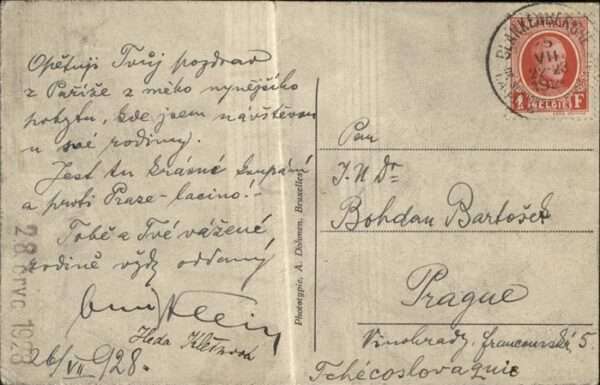 Opětuji Tvůj pozdrav
z Paříže z mého nynějšího
pobytu, kde jsem návštěvou
u své rodiny.
Jest tu krásné koupání
a proti Praze - lacino!-
Tobě a Tvé vážené
rodině vždy oddaný
Heda
26/VII 928.
28 črvc 1928
Phototypie, A. Dohmen, Bruxelles.
BLANKENBERGHE
VII
1 F
BELGIË
Pan
J. U Dr
Bohdan Bartošek
Prague
Vinohrady, francouzská 5.
Tchécoslovaquie